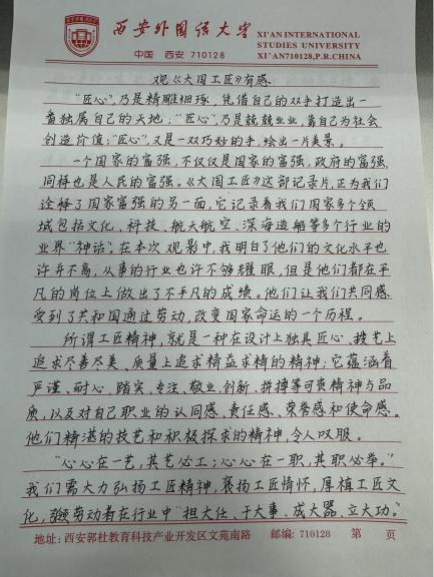 西安外国语大学
中国 西安 710128
XI'AN INTERNATIONAL
STUDIES UNIVERSITY
XI'AN710128,P.R.CHINA
观《大国工匠》有感
“匠心”,乃是精雕细琢,凭借自己的双手打造出一
番独属自己的天地;“匠心”,乃是兢兢业业,靠自己为社会
创造价值;“匠心”,又是一双巧妙的手,绘出一片美景。
一个国家的富强,不仅仅是国家的富强,政府的富强,
同样也是人民的富强。《大国工匠》这部记录片,正为我们
诠释了国家富强的另一面,它记录着我们国家多个领
域包括文化、科技、航天航空、深海造船等多个行业的
业界“神话”;在本次观影中,我明白了他们的文化水平也
许并不高,从事的行业也许不够耀眼,但是他们都在平
凡的岗位上做出了不平凡的成绩。他们让我们共同感
受到了共和国通过劳动,改变国家命运的一个历程。
所谓工匠精神,就是一种在设计上独具匠心、技艺上
追求尽善尽美、质量上追求精益求精的精神;它蕴涵着
严谨、耐心、踏实、专注、敬业、创新、拼搏等可贵精神与品
质,以及对自己职业的认同感、责任感、荣誉感和使命感。
他们精湛的技艺和积极探求的精神,令人叹服。
“心心在一艺,其艺必工;心心在一职,其职必举。”
我们需大力弘扬工匠精神,褒扬工匠情怀,厚植工匠文
化,劳动者在行业中“担大任、干大事、成大器、立大功。”
地址:西安郭杜教育科技产业开发区文苑南路 邮编:710128 第 页